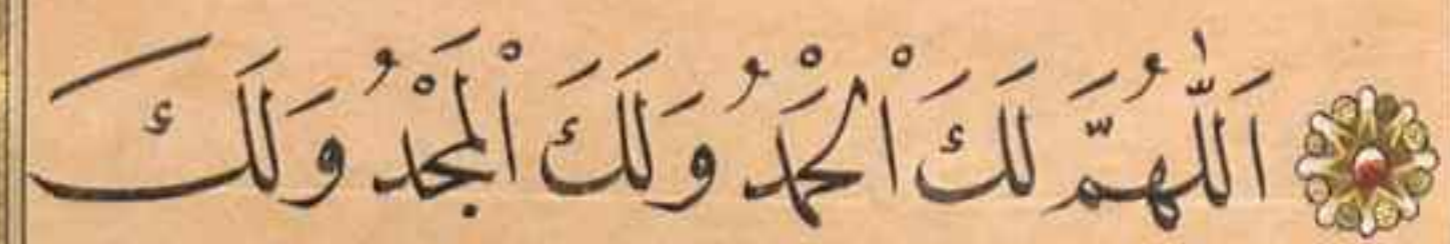 اَللّٰهُمَّ لَكَ اْلحَمْدُ وَلَكَ اْلمَجْدُ وَلَكَ